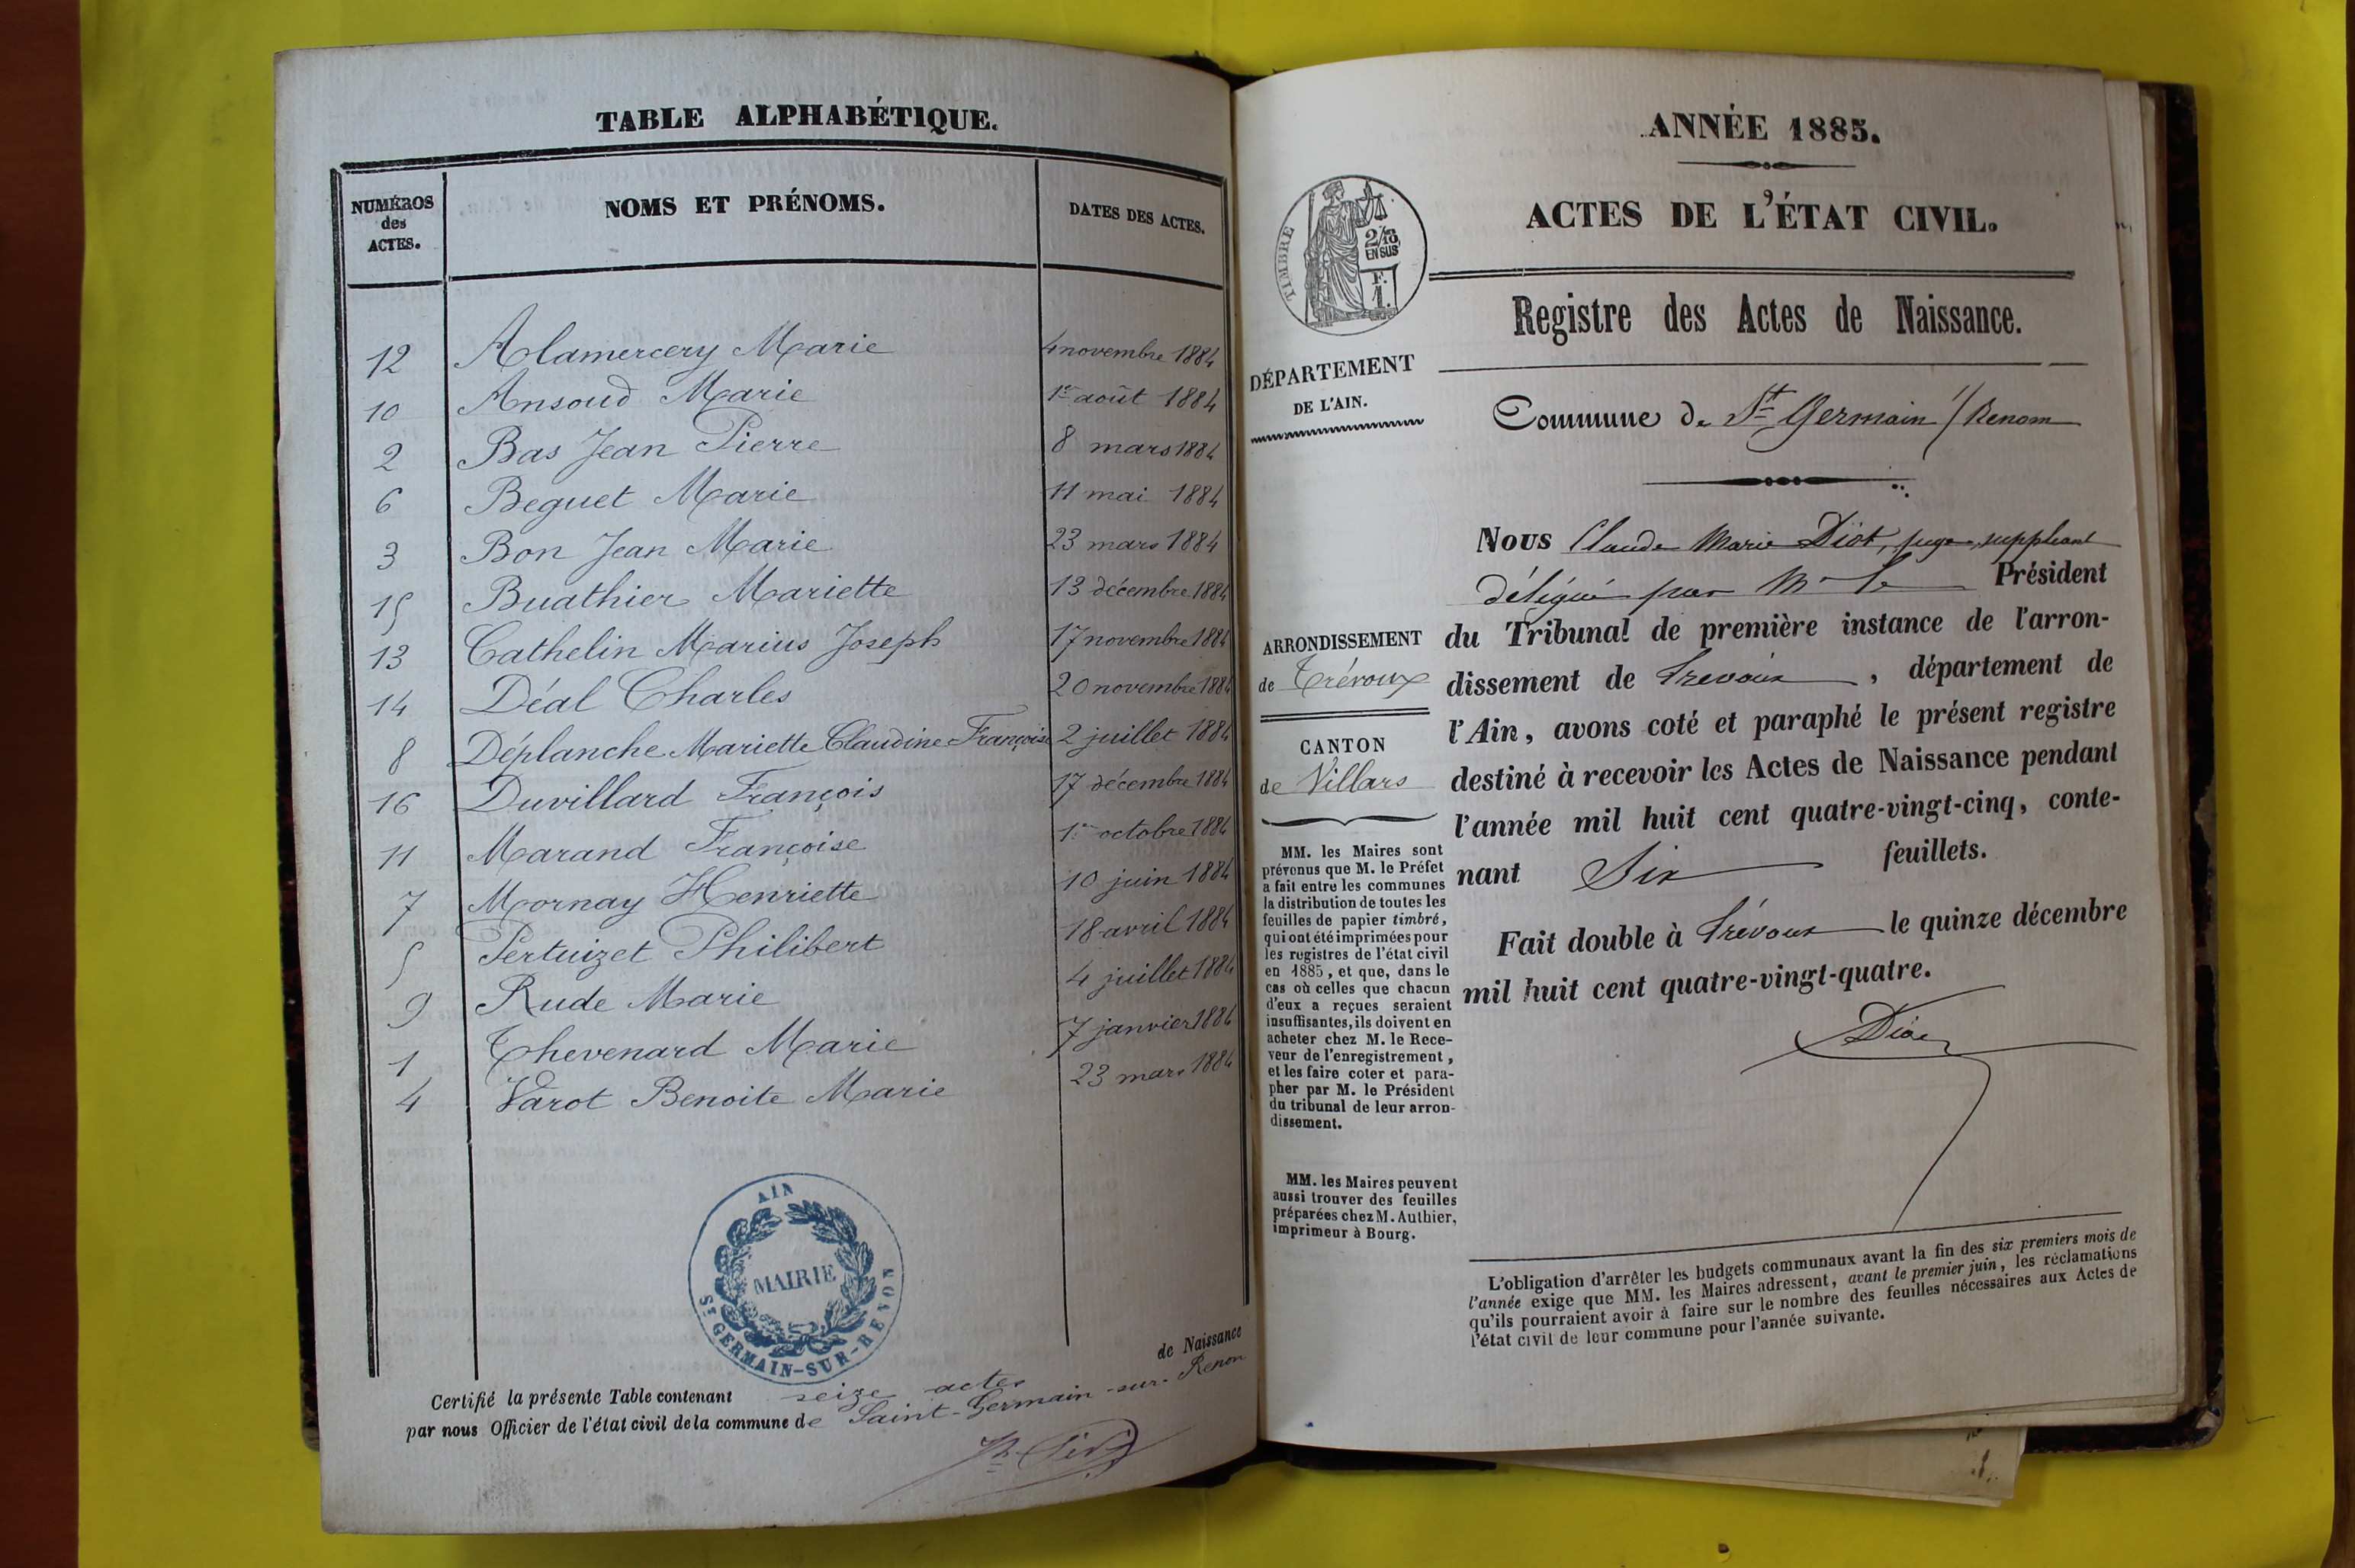 TABLE ALPHABÉTIQUE.
NUMÉROS
des
ACTES.
NOMS ET PRÉNOMS.
DATES DES ACTES.
12 Alamercery Marie 4 novembre 1884
10 Ansoud Marie 1er août 1884
2 Bas Jean Pierre 8 mars 1884
6 Beguet Marie 11 mai 1884
3 Bon Jean Marie 23 mars 1884
15 Buathier Mariette 13 décembre 1884
13 Cathelin Marius Joseph 17 novembre 1884
14 Déal Charles 20 novembre 1884
8 Déplanche Mariette Claudine Françoise 2 juillet 1884
16 Duvillard François 17 décembre 1884
11 Marand Françoise 1er octobre 1884
7 Mornay Henriette 10 juin 1884
5 Pertuizet Philibert 18 avril 1884
9 Rude Marie 4 juillet 1884
1 Thevenard Marie 7 janvier 1884
4 Varot Benoite Marie 23 mars 1884
AIN
MAIRIE
St GERMAIN-SUR-RENON
Certifié la présente Table contenant seize actes de Naissance
par nous Officier de l'état civil de la commune de Saint-Germain-sur-Renon
ANNÉE 1885.
ACTES DE L'ÉTAT CIVIL.
TIMBRE
2/10
EN SUS
F.
1.
Registre des Actes de Naissance.
DÉPARTEMENT
DE L'AIN.
Commune de St Germain s/ Renom
Nous Claude Marie Diot, juge suppléant
délégué par Mr le Président
du Tribunal de première instance de l'arron-
dissement de Trévoux, département de
l'Ain, avons coté et paraphé le présent registre
destiné à recevoir les Actes de Naissance pendant
l'année mil huit cent quatre-vingt-cinq, conte-
nant Six feuillets.
Fait double à Trévoux le quinze décembre
mil huit cent quatre-vingt-quatre.
Diot
ARRONDISSEMENT
de Trévoux
CANTON
de Villars
MM. les Maires sont
prévenus que M. le Préfet
a fait entre les communes
la distribution de toutes les
feuilles de papier timbré,
qui ont été imprimées pour
les registres de l'état civil
en 1885, et que, dans le
cas où celles que chacun
d'eux a reçues seraient
insuffisantes, ils doivent en
acheter chez M. le Rece-
veur de l'enregistrement,
et les faire coter et para-
pher par M. le Président
du tribunal de leur arron-
dissement.
MM. les Maires peuvent
aussi trouver des feuilles
préparées chez M. Authier,
imprimeur à Bourg.
L'obligation d'arrêter les budgets communaux avant la fin des six premiers mois de
l'année exige que MM. les Maires adressent, avant le premier juin, les réclamations
qu'ils pourraient avoir à faire sur le nombre des feuilles nécessaires aux Actes de
l'état civil de leur commune pour l'année suivante.